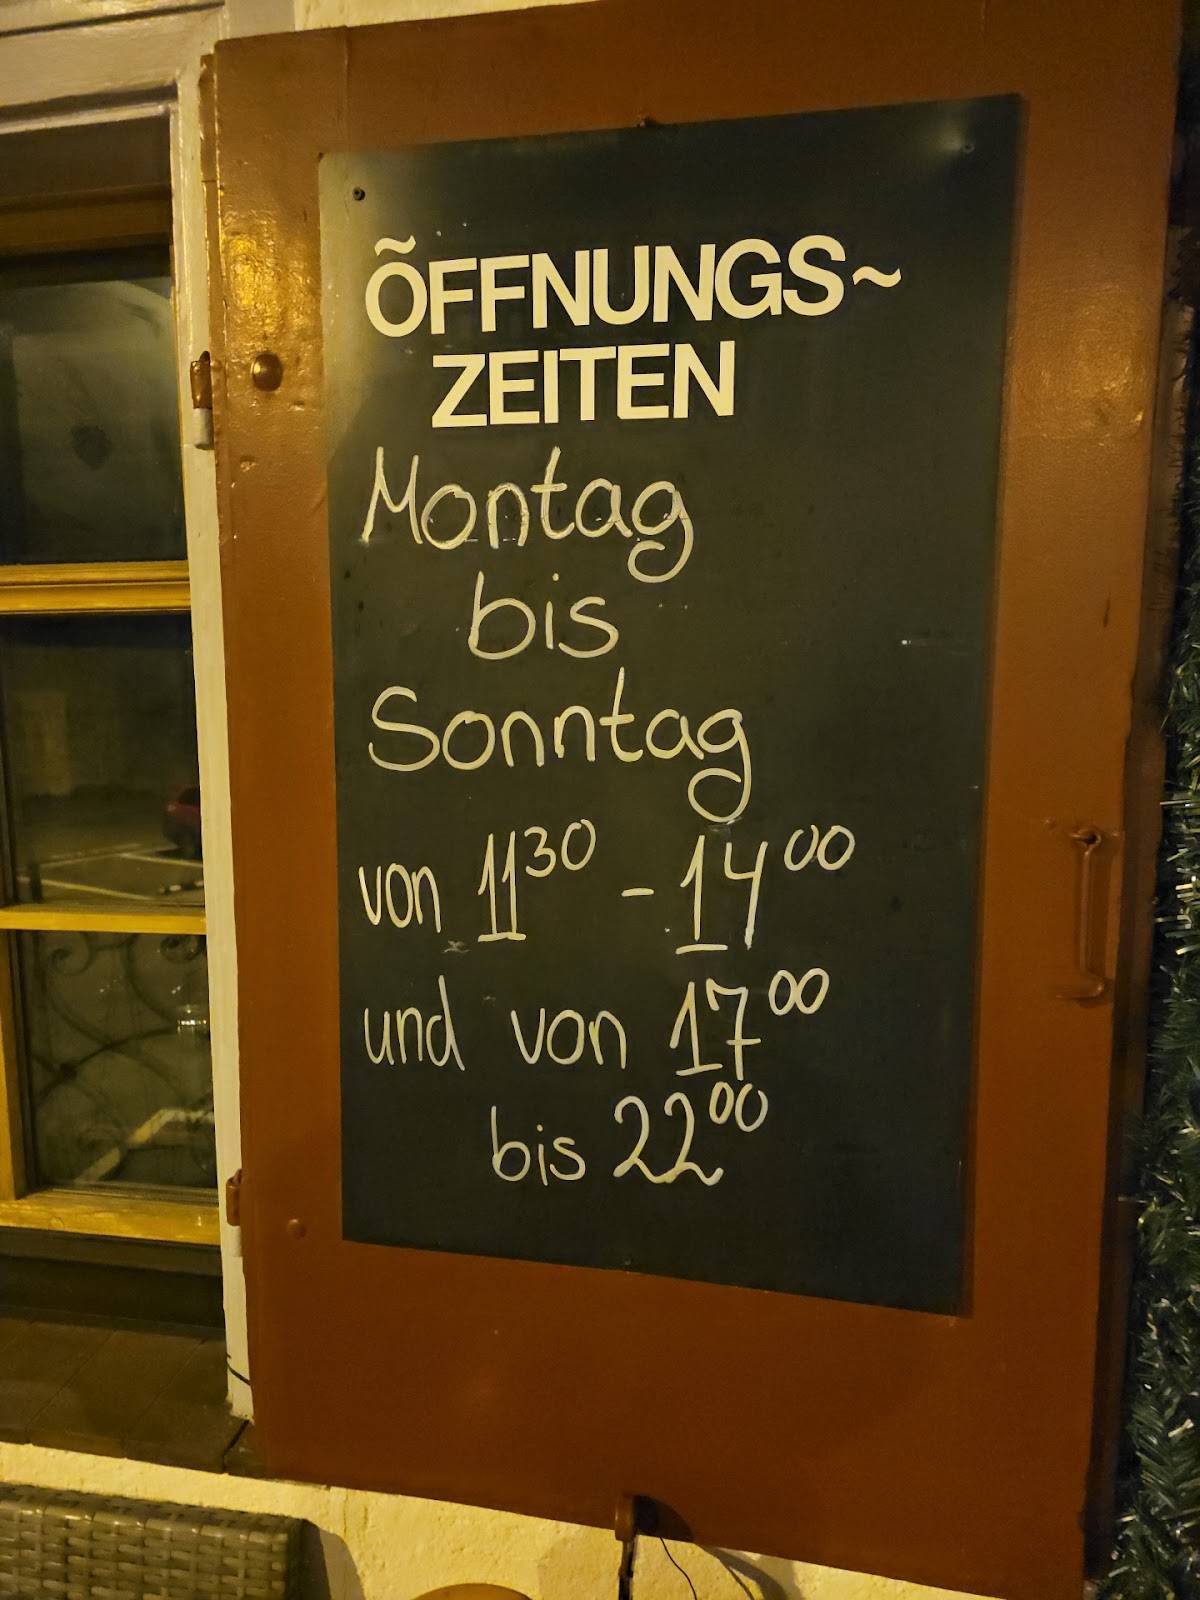 ÕFFNUNGS~
ZEITEN
Montag
bis
Sonntag
von 11³⁰ - 14⁰⁰
und von 17⁰⁰
bis 22⁰⁰